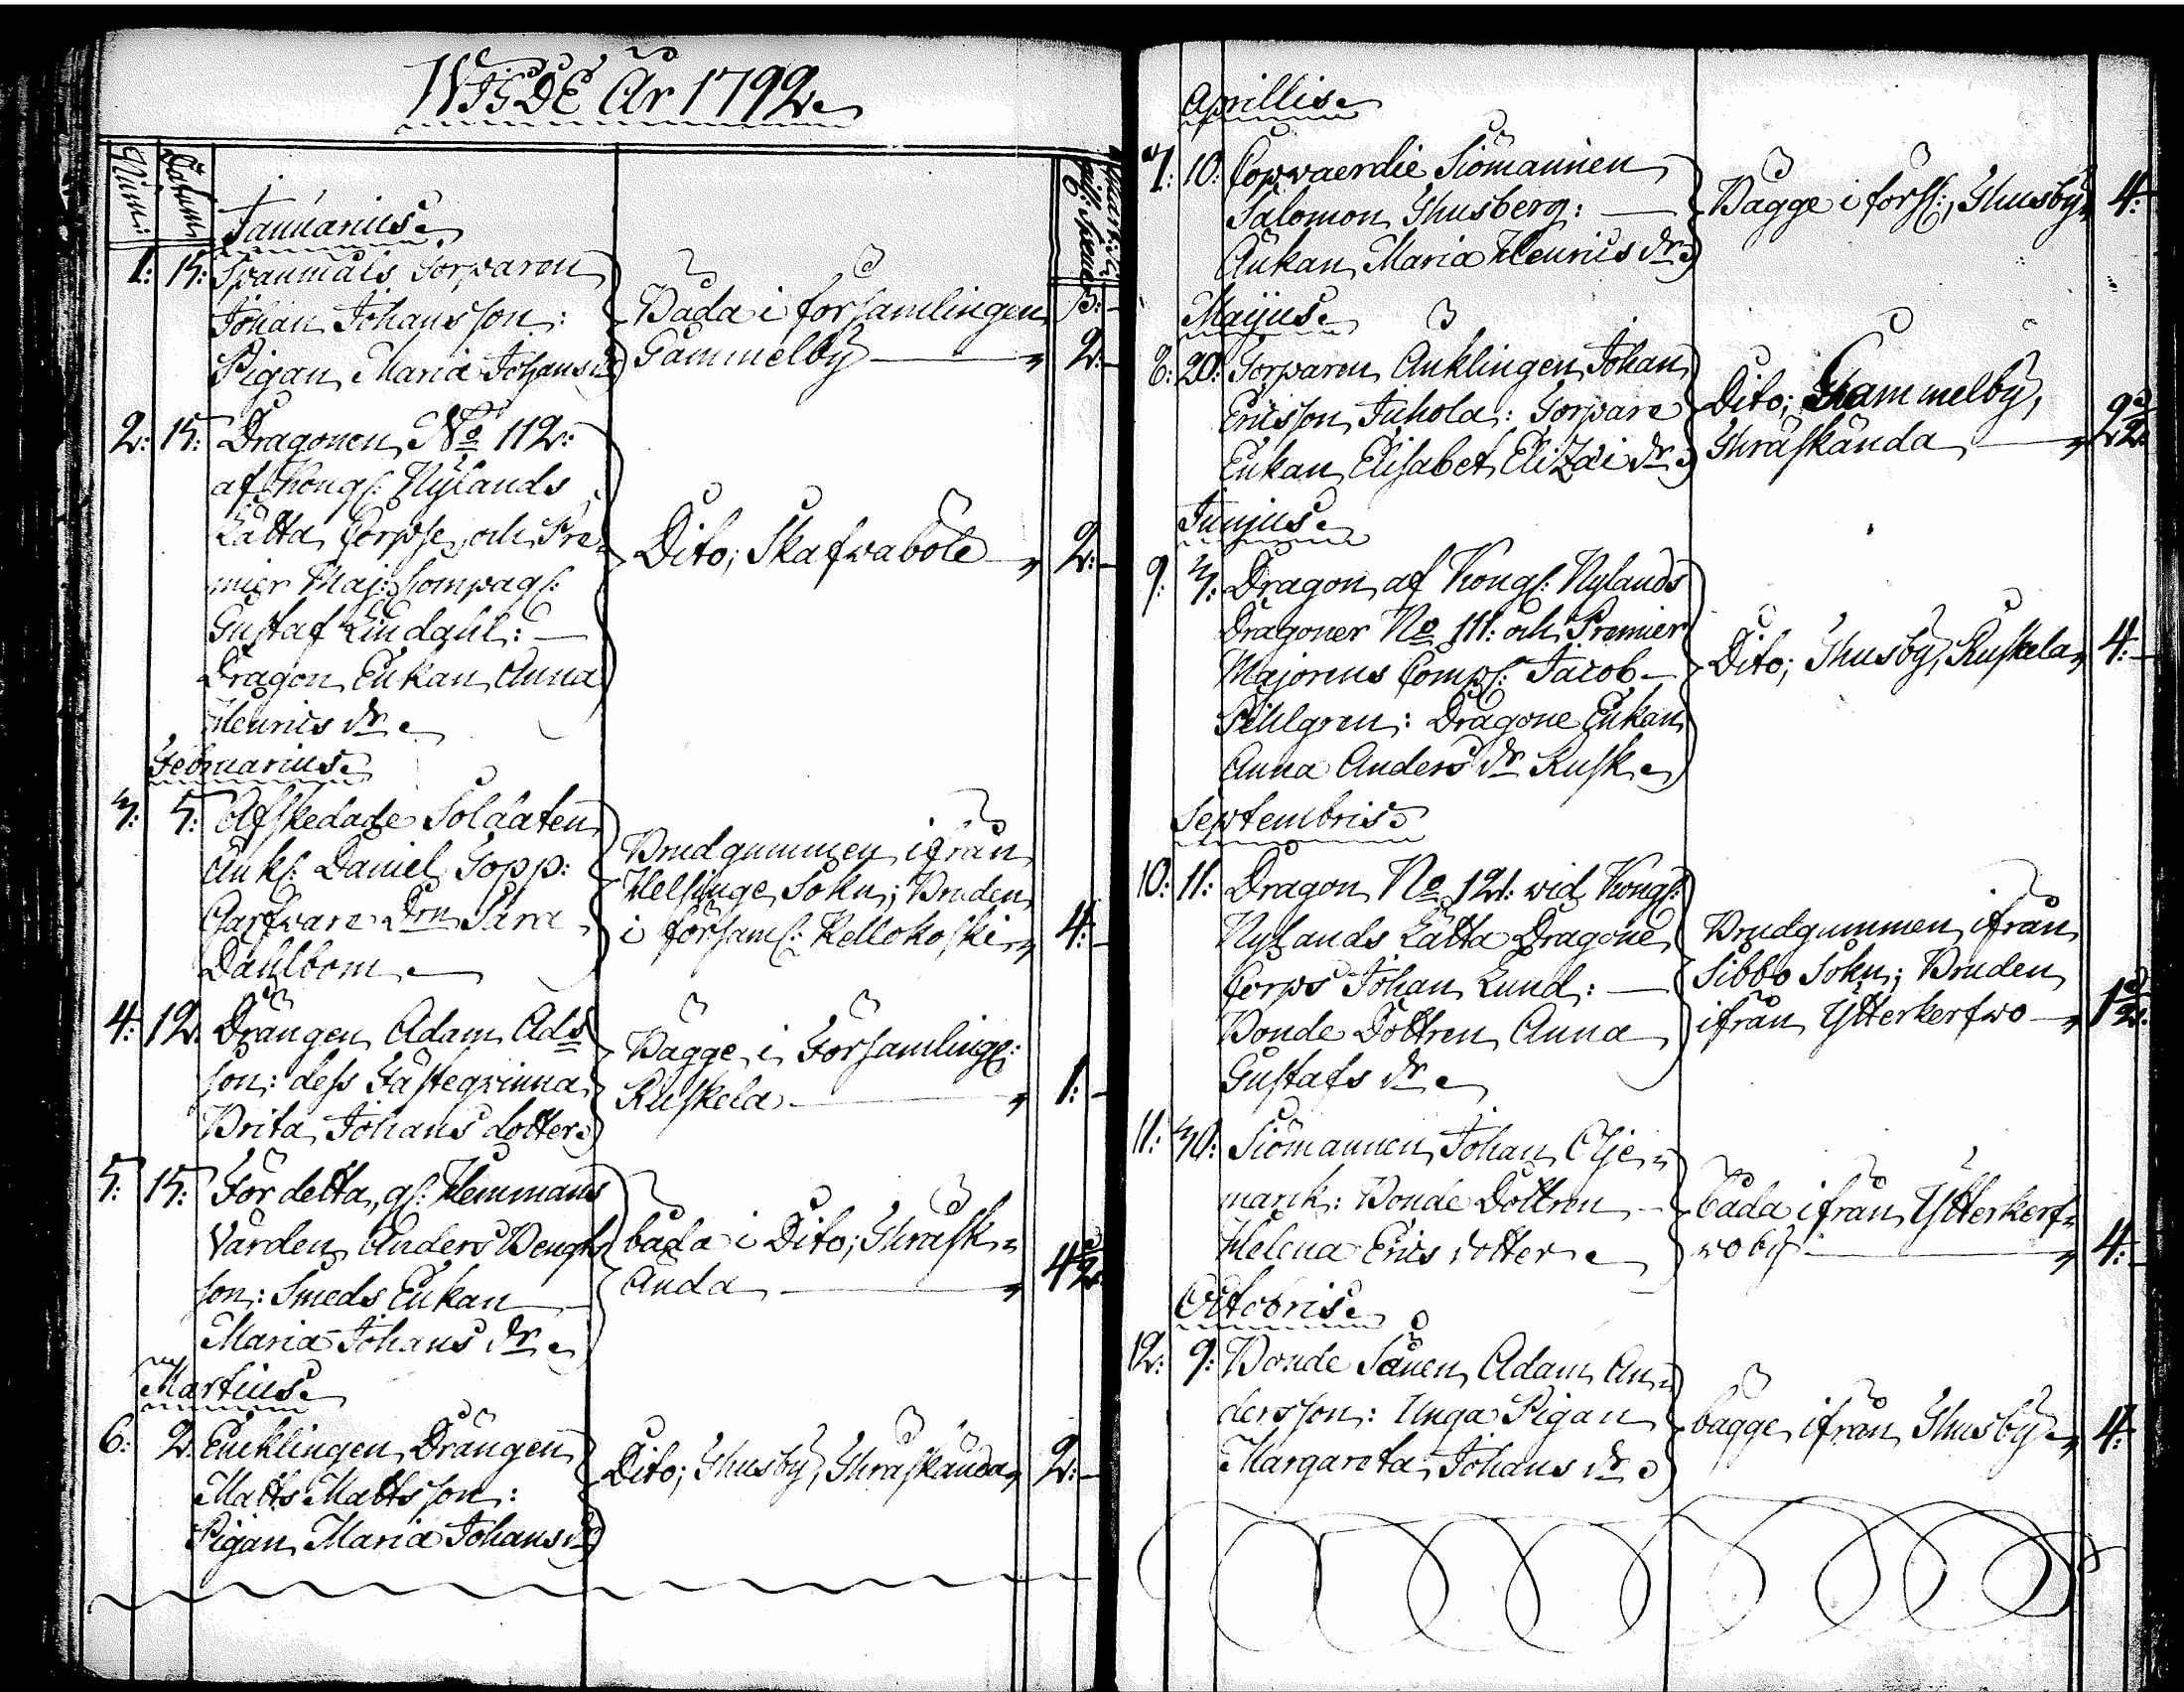 WIGDE År 1792.
Num:
Datum
Januarius.
1: 15: Spanmåls Torparen
Johan Johansson:
Pigan Maria Johans dr
Båda i församlingen
Gammelby
2: 
2: 15: Dragonen No 112:
af Kongl: Nylands
Lätta Corpse, och Pre
mier Maj: Compagl:
Gustaf Lindahl:
Dragon Enkan Anna
Henrics dr
Dito; Skafwaböle
2:
Februarius.
3: 5: Afskedade Soldaten
Änkl: Daniel Topp:
Garfware Drn Sara
Dahlbom
Brudgummen ifrån
Helsinge Sokn; Bruden
i församl: Kellokoski
4:
4: 12. Drängen Adam Ads
son: dess Fästeqvinna
Brita Johans dotter
Bägge i Församlingl:
Ruskela
1:
5: 15: För detta gl: Hemmans
Värden Anders Bengts
son: Smeds Enkan
Maria Johans dr
båda i Dito; Thräsk
ända
4 2
Martius.
6: 2. Encklingen Drängen
Matts Mattsson:
Pigan Maria Johans dr
Dito; Thusby, Thräskända
2:
Aprillis.
7: 10: Copvaerdie Siömannen
Salomon Thusberg:
Änkan Maria Henrics dr
Bägge i förss:, Thusby
4:
Maijus.
8: 20: Torparen Änklingen Johan
Ericsson Juhola: Torpare
Enkan Elisabet Elizæi dr
Dito; Gammelby,
Thräskända
2 2
Junjus.
9: 3: Dragon af Kongl: Nylands
Dragoner No 111: och Premier
Majorens Compl: Jacob
Pihlgren: Dragone Enkan
Anna Anders dr Rusk
Dito; Thusby, Ruskela
4:
Septembris
10: 11: Dragon No 121: wid Kongl:
Nylands Lätta Dragone
Corps Johan Lund:
Bonde Dottren Anna
Gustafs dr
Brudgummen ifrån
Sibbo Sokn; Bruden
ifrån Ytterkerfwo
1 2
11: 30: Siömannen Johan Olje
marck: Bonde Dottren
Helena Erics dotter
båda ifrån Ytterkerf
wo by
4:
Octobris.
12: 9: Bonde Sånen Adam An
dersson: Unga Pigan
Margareta Johans dr
bägge ifrån Thusby
4: